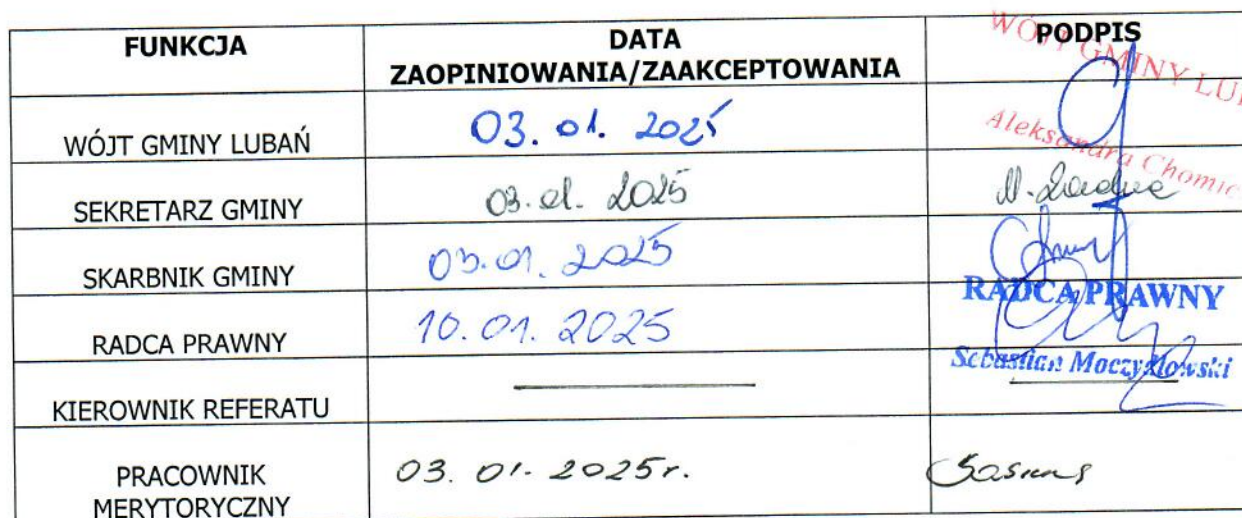 FUNKCJA
DATA
ZAOPINIOWANIA/ZAAKCEPTOWANIA
PODPIS
WÓJT GMINY
Aleksandra
WÓJT GMINY LUBAŃ
03. 01. 2025
SEKRETARZ GMINY
03. 01. 2025
SKARBNIK GMINY
03. 01. 2025
RADCA PRAWNY
10. 01. 2025
RADCA PRAWNY
Sebastian Moczydłowski
KIEROWNIK REFERATU
PRACOWNIK
MERYTORYCZNY
03. 01. 2025r.